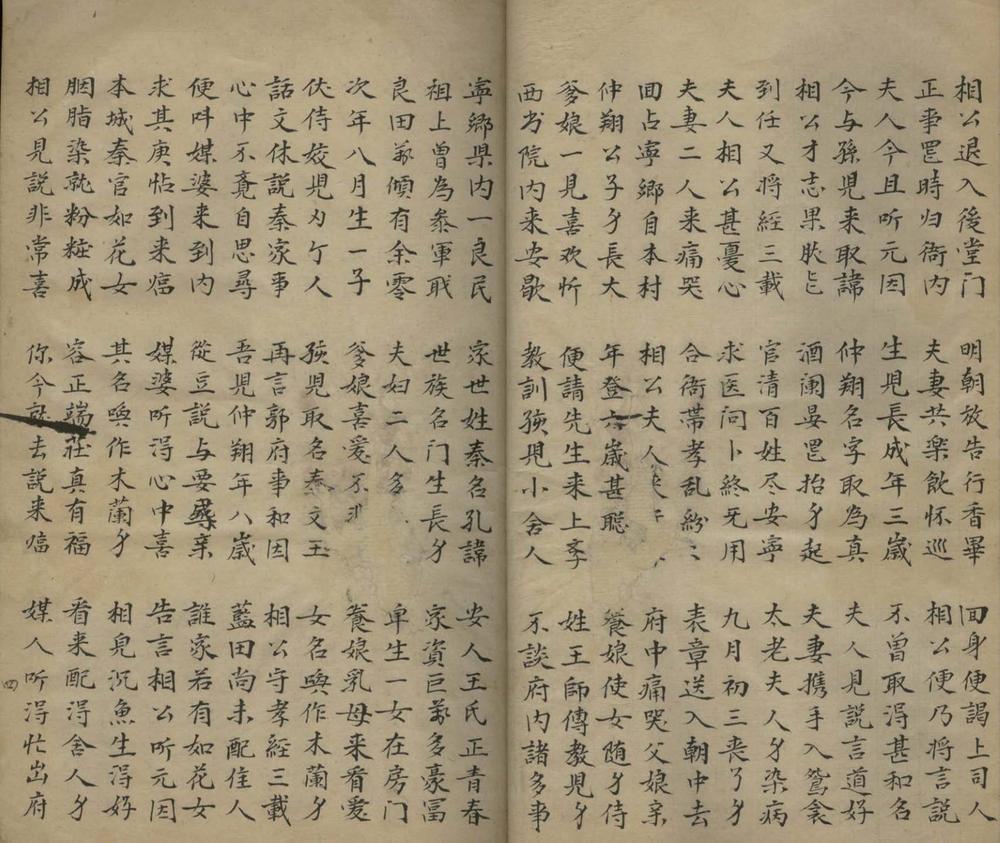 相公退入後堂门 明朝放告行香畢 回身便謁上司人
正事罢時归衙内 夫妻共楽飲怀巡 相公便乃将言説
夫人今且听元因 生児長成年三歳 不曾取淂甚和名
今与孫児来取諱 仲翔名字取為真 夫人見説言道好
相公才志果 酒阑晏罢抬身起 夫妻携手入鴛衾
到任又将經三載 官清百姓尽安寧 太老夫人身染病
夫人相公甚憂心 求医问卜終无用 九月初三丧了身
夫妻二人来痛哭 合衙帯孝乱紛〻 表章送入朝中去
回占寧鄉自本村 相公夫人 府中痛哭父娘亲
仲翔公子身長大 年登六歳甚聡 養娘使女随身侍
爹娘一見喜欢忻 便請先生来上孝 姓王師傅教児身
西书院内来安歇 教訓孩児小舍人 不談府内諸多事
寧鄉県内一良民 家世姓秦名孔諱 安人王氏正青春
祖上曽為参軍戝 世族名门生長身 家資巨万多豪冨
良田万傾有余零 夫妇二人多 单生一女在房门
次年八月生一子 爹娘喜爱不非 養娘乳母来看爱
伏侍姣児 人 孩児取名秦文玉 女名喚作木蘭身
話文休説秦家事 再言郭府事和因 相公守孝經三載
心中不覔自思尋 吾児仲翔年八歳 藍田尚未配佳人
便呌媒婆来到内 從豆説与要尋亲 誰家若有如花女
求其庚帖到来临 媒婆听淂心中喜 告言相公听元因
本城秦官如花女 其名喚作木蘭身 相皃沉魚生淂好
胭脂染就粉粧成 容正端莊真有福 看来配淂舍人身
相公見説非常喜 你今就去説来临 媒人听淂忙出府
四